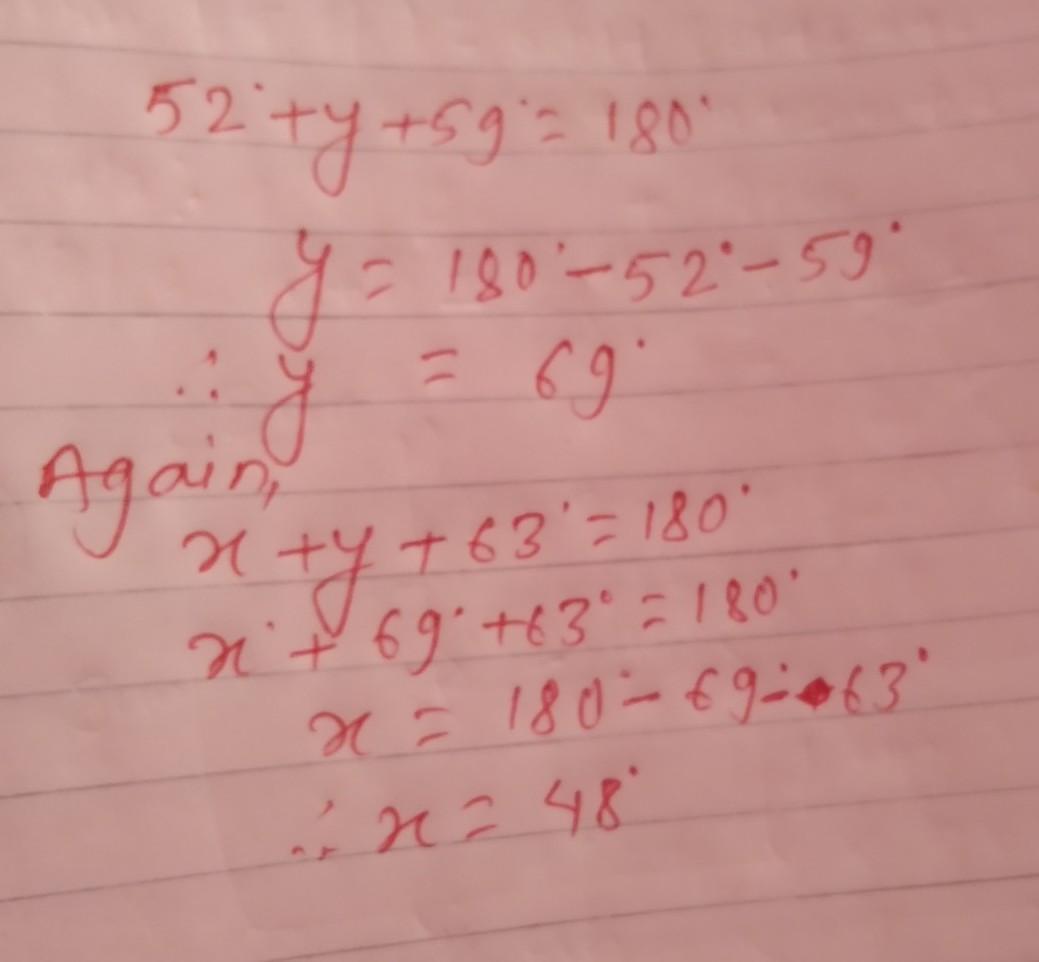 52° + y + 59° = 180°
y = 180° - 52° - 59°
∴ y = 69°
Again,
x + y + 63° = 180°
x° + 69° + 63° = 180°
x = 180° - 69° - 63°
∴ x = 48°